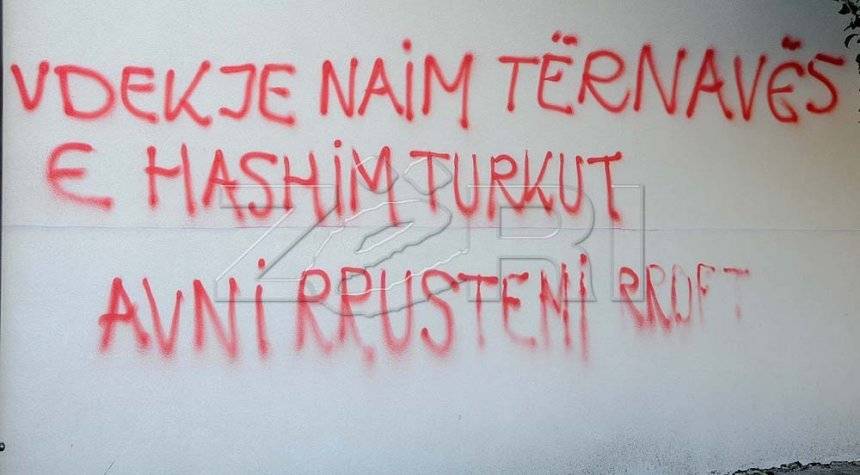 VDEKJE NAIM TËRNAVËS
E HASHİM TURKUT
ZËRI
AVNİ RRUSTEMİ RROFT